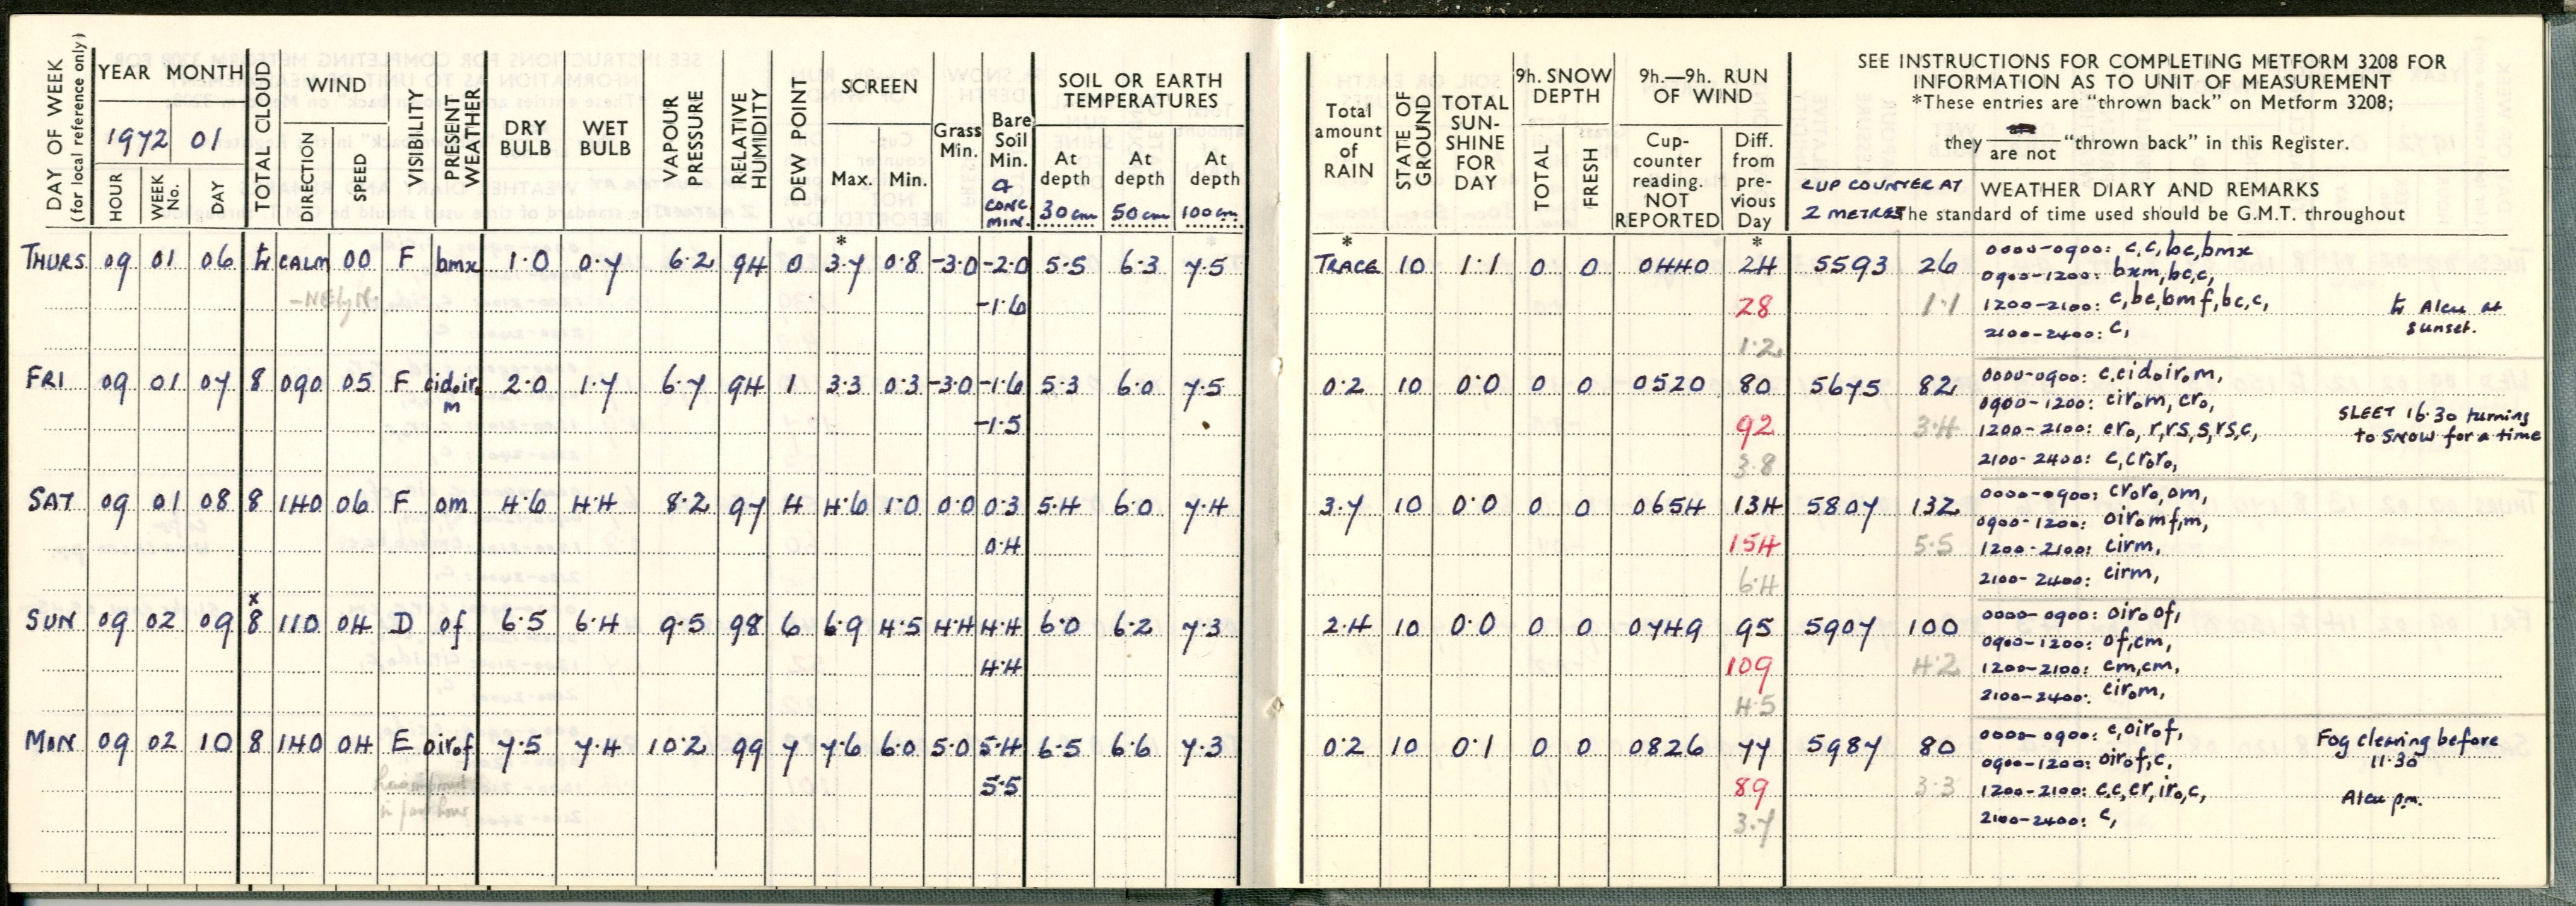 DAY OF WEEK
(for local reference only)
YEAR MONTH
1972 01
HOUR
WEEK No.
DAY
TOTAL CLOUD
WIND
DIRECTION
SPEED
VISIBILITY
PRESENT WEATHER
DRY BULB
WET BULB
VAPOUR PRESSURE
RELATIVE HUMIDITY
DEW POINT
SCREEN
Max. Min.
Grass Min.
Bare Soil Min.
& CONC. MIN.
SOIL OR EARTH TEMPERATURES
At depth 30cm
At depth 50cm
At depth 100cm
Total amount of RAIN
STATE OF GROUND
TOTAL SUN-SHINE FOR DAY
9h. SNOW DEPTH
TOTAL
FRESH
9h.—9h. RUN OF WIND
Cup-counter reading. NOT REPORTED
Diff. from pre-vious Day
SEE INSTRUCTIONS FOR COMPLETING METFORM 3208 FOR
INFORMATION AS TO UNIT OF MEASUREMENT
*These entries are "thrown back" on Metform 3208;
they are not "thrown back" in this Register.
CUP COUNTER AT
2 METRES
WEATHER DIARY AND REMARKS
The standard of time used should be G.M.T. throughout
* * *
THURS 09 01 06 CALM 00 F bmx 1.0 0.7 6.2 94 0 3.7 0.8 -3.0 -2.0 5.5 6.3 7.5 TRACE 10 1.1 0 0 0440 24 5593 26 0000-0900: c,c,bc,bmx
0900-1200: bxm,bc,c,
-NEly N. -1.6 28 1.1 1200-2100: c,bc,bmf,bc,c, Alcu at
sunset.
1.2 2100-2400: c,
FRI 09 01 07 8 090 05 F cidoiro 2.0 1.7 6.7 94 1 3.3 0.3 -3.0 -1.6 5.3 6.0 7.5 0.2 10 0.0 0 0 0520 80 5675 82 0000-0900: c,cidoirom,
m 0900-1200: cirom, cro,
-1.5 92 3.4 1200-2100: cro, r,rs,s,rs,c, SLEET 16.30 turning
to SNOW for a time
3.8 2100-2400: c,croro,
SAT 09 01 08 8 140 06 F om 4.6 4.4 8.2 97 4 4.6 1.0 0.0 0.3 5.4 6.0 7.4 3.7 10 0.0 0 0 0654 134 5807 132 0000-0900: croro,om,
0900-1200: oiromf,m,
0.4 154 5.5 1200-2100: cirm,
6.4 2100-2400: cirm,
x
SUN 09 02 09 8 110 04 D of 6.5 6.4 9.5 98 6 6.9 4.5 4.4 4.4 6.0 6.2 7.3 2.4 10 0.0 0 0 0749 95 5907 100 0000-0900: oiroof,
0900-1200: of,cm,
4.4 109 4.2 1200-2100: cm,cm,
4.5 2100-2400: cirom,
MON 09 02 10 8 140 04 E oirof 7.5 7.4 10.2 99 7 7.6 6.0 5.0 5.4 6.5 6.6 7.3 0.2 10 0.1 0 0 0826 77 5987 80 0000-0900: c,oirof, Fog clearing before
0900-1200: oirof,c, 11.30
5.5 89 3.3 1200-2100: c,c,cr,iro,c, Alcu p.m.
in past hour 3.7 2100-2400: c,